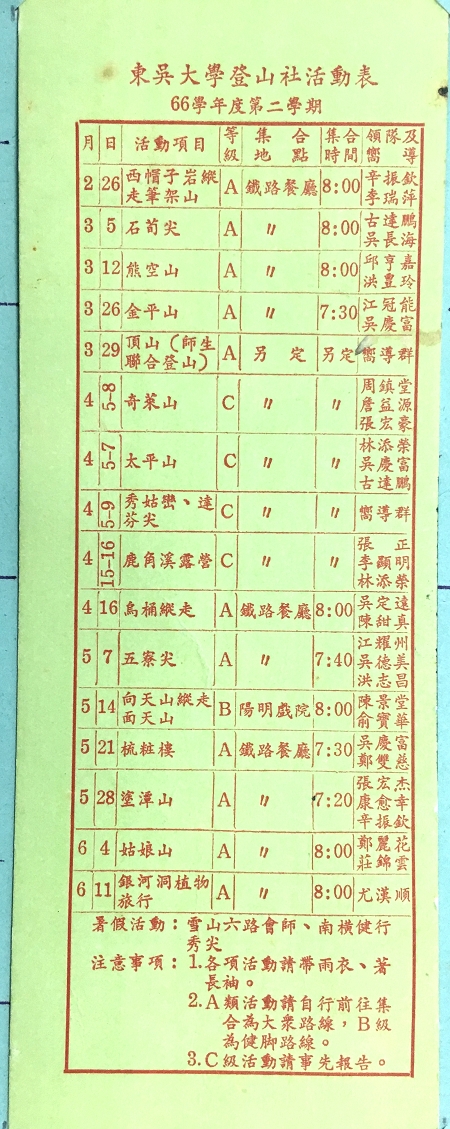 東吳大學登山社活動表
66學年度第二學期
月 日 活動項目 等級 集合地點 集合時間 領隊及嚮導
2 26 西帽子岩縱走筆架山 A 鐵路餐廳 8:00 辛振欽 李瑞萍
3 5 石荀尖 A 〃 8:00 古達鵬 吳長海
3 12 熊空山 A 〃 8:00 邱亨嘉 洪豊玲
3 26 金平山 A 〃 7:30 江冠能 吳慶富
3 29 頂山(師生聯合登山) A 另定 另定 嚮導群
4 5-8 奇萊山 C 〃 〃 周鎮堂 詹益源 張宏豪
4 5-7 太平山 C 〃 〃 林添榮 吳慶富 古達鵬
4 5-9 秀姑巒、達芬尖 C 〃 〃 嚮導群
4 15-16 鹿角溪露營 C 〃 〃 張正 李顯明 林添榮
4 16 烏桶縱走 A 鐵路餐廳 8:00 吳定遠 陳甜真
5 7 五寮尖 A 〃 7:40 江耀州 吳德美 洪志昌
5 14 向天山縱走面天山 B 陽明戲院 8:00 陳景堂 俞寶華
5 21 梳粧樓 A 鐵路餐廳 7:30 吳慶富 鄭雙慈
5 28 塗潭山 A 〃 7:20 張宏杰 康愈幸 辛振欽
6 4 姑娘山 A 〃 8:00 鄭麗花 莊錦雲
6 11 銀河洞植物旅行 A 〃 8:00 尤漢順
暑假活動:雪山六路會師、南橫健行
秀尖
注意事項:1.各項活動請帶雨衣、著
長袖。
2.A類活動請自行前往集
合為大衆路線,B級
為健脚路線。
3.C級活動請事先報告。